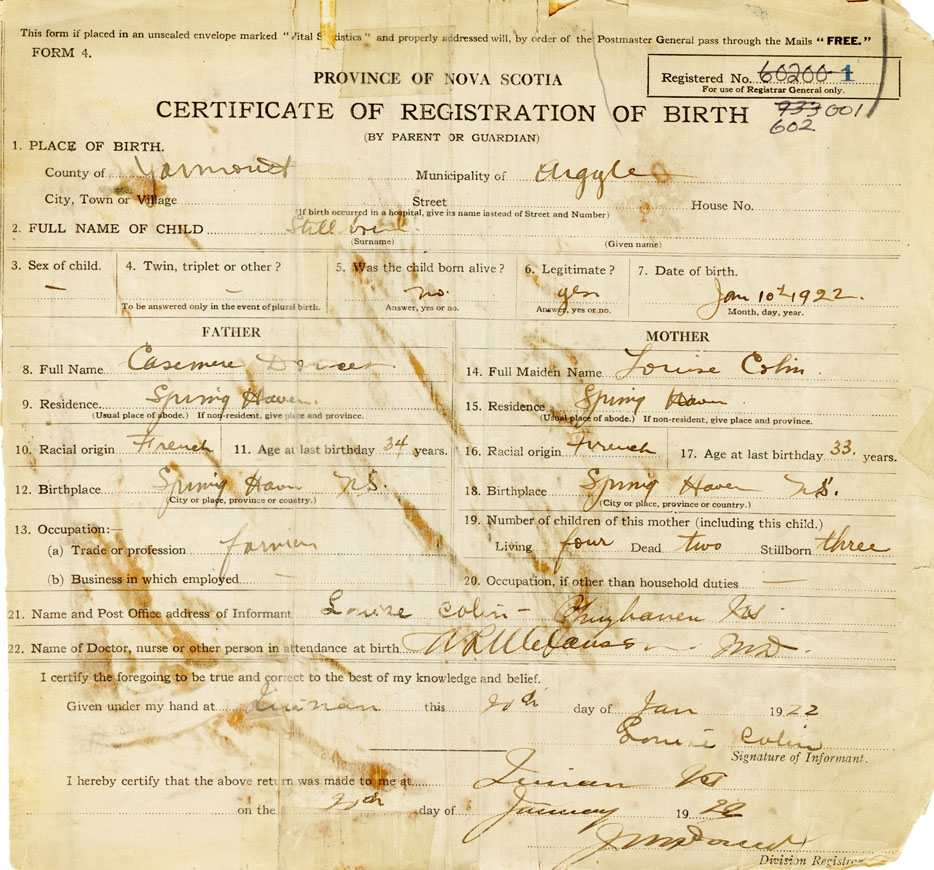 This form if placed in an unsealed envelope marked "Vital Statistics" and properly addressed will, by order of the Postmaster General pass through the Mails "FREE."
FORM 4.
PROVINCE OF NOVA SCOTIA
Registered No. 60200-1
For use of Registrar General only.
CERTIFICATE OF REGISTRATION OF BIRTH
933 601
602
(BY PARENT OR GUARDIAN)
1. PLACE OF BIRTH.
County of Yarmouth Municipality of Argyle
City, Town or Village Street House No.
(If birth occurred in a hospital, give its name instead of Street and Number)
2. FULL NAME OF CHILD Still born
(Surname) (Given name)
3. Sex of child. 4. Twin, triplet or other? 5. Was the child born alive? 6. Legitimate? 7. Date of birth.
— — no. yes Jan 10th 1922.
To be answered only in the event of plural birth. Answer, yes or no. Answer, yes or no. Month, day, year.
FATHER MOTHER
8. Full Name Casemere 14. Full Maiden Name Louise Colin
9. Residence Spring Haven 15. Residence Spring Haven
(Usual place of abode.) If non-resident, give place and province. (Usual place of abode.) If non-resident, give place and province.
10. Racial origin French 11. Age at last birthday 34 years. 16. Racial origin French 17. Age at last birthday 33. years.
12. Birthplace Spring Haven N.S. 18. Birthplace Spring Haven N.S.
(City or place, province or country.) (City or place, province or country.)
13. Occupation:— 19. Number of children of this mother (including this child.)
(a) Trade or profession farmer Living four Dead two Stillborn three
(b) Business in which employed — 20. Occupation, if other than household duties —
21. Name and Post Office address of Informant Louise Colin - NS
22. Name of Doctor, nurse or other person in attendance at birth M.D.
I certify the foregoing to be true and correct to the best of my knowledge and belief.
Given under my hand at Quinan this 20th day of Jan 1922
Louise Colin
Signature of Informant.
I hereby certify that the above return was made to me at Quinan NS
on the 20th day of January 1922
Division Registrar